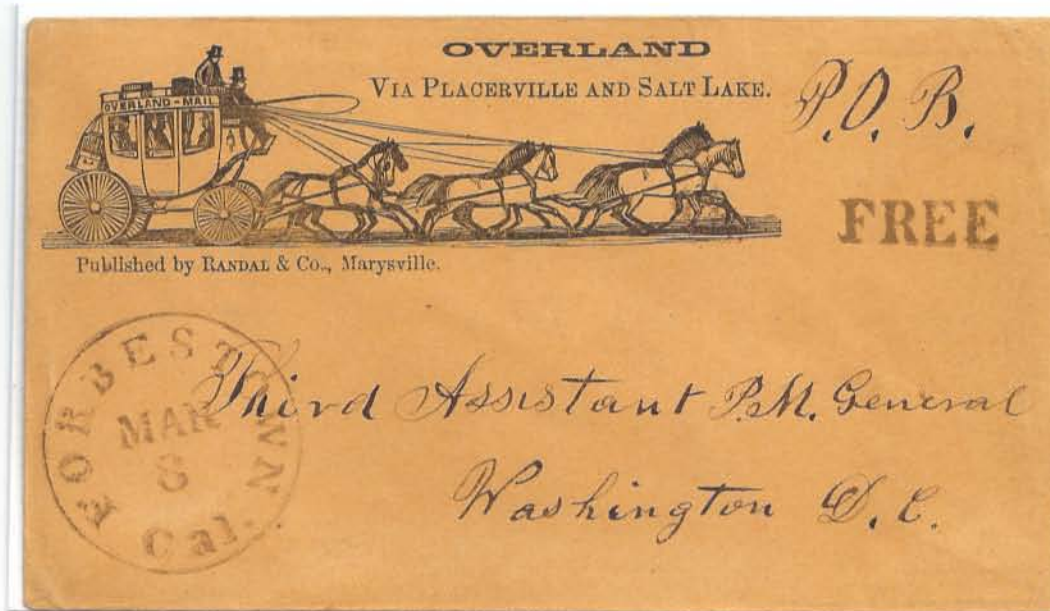 OVERLAND
VIA PLACERVILLE AND SALT LAKE.
P.O. B.
OVERLAND-MAIL
FREE
Published by RANDAL & Co., Marysville.
FORBESTOWN
MAR
8
Cal.
Third Assistant P.M. General
Washington D.C.